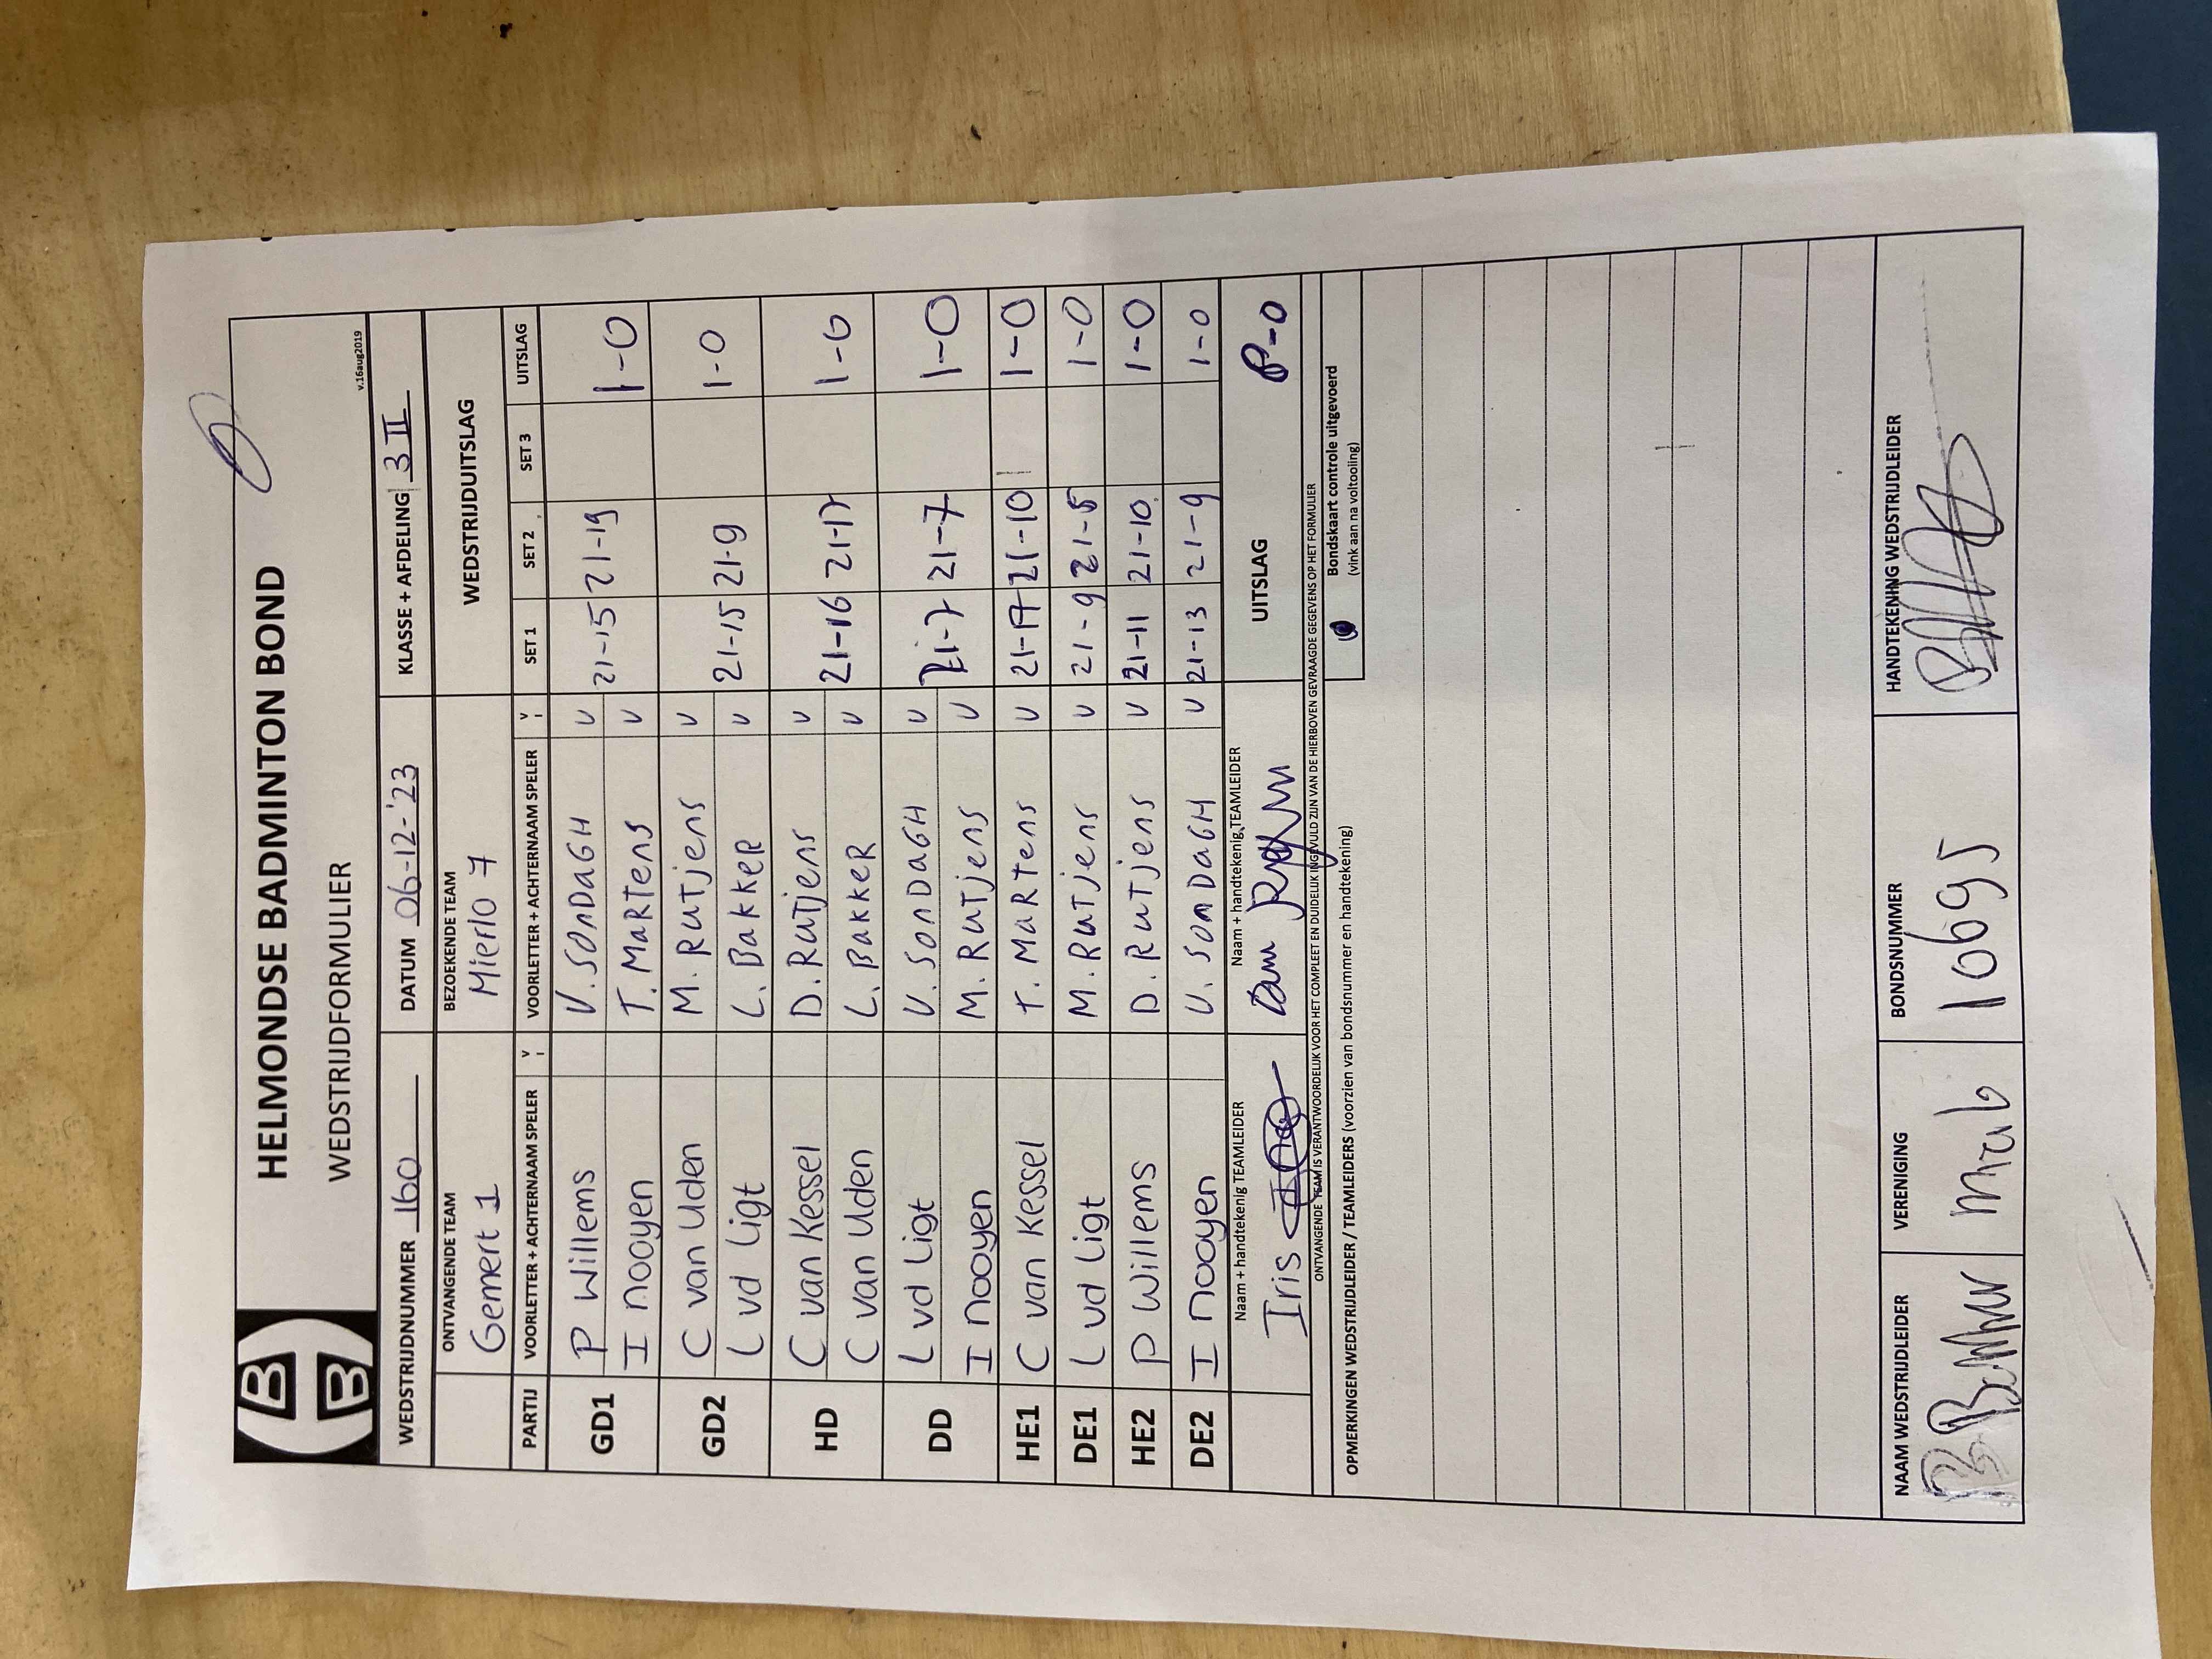 HELMONDSE BADMINTON BOND
WEDSTRIJDFORMULIER
v.16aug2019
WEDSTRIJDNUMMER 160 DATUM 06-12-'23 KLASSE + AFDELING 3 II
ONTVANGENDE TEAM BEZOEKENDE TEAM WEDSTRIJDUITSLAG
Gemert 1 Mierlo 7
PARTIJ VOORLETTER + ACHTERNAAM SPELER V VOORLETTER + ACHTERNAAM SPELER V SET 1 SET 2 SET 3 UITSLAG
GD1 P Willems V. SONDAGH V 21-15 21-19 1-0
I nooyen T. MARTens V
GD2 C van Uden M. RUTjens V 21-15 21-9 1-0
L vd Ligt L. BakkeR V
HD C van Kessel D. RUTjens V 21-16 21-17 1-0
C van Uden L. BakkeR V
DD L vd Ligt V. SONDAGH V 21-7 21-7 1-0
I nooyen M. RUTjens V
HE1 C van Kessel T. MARTens V 21-17 21-10 1-0
DE1 L vd Ligt M. RUTjens V 21-9 21-5 1-0
HE2 P Willems D. RUTjens V 21-11 21-10 1-0
DE2 I nooyen V. SONDAGH V 21-13 21-9 1-0
Naam + handtekenig TEAMLEIDER Naam + handtekenig TEAMLEIDER UITSLAG 8-0
Iris
ONTVANGENDE TEAM IS VERANTWOORDELIJK VOOR HET COMPLEET EN DUIDELIJK INGEVULD ZIJN VAN DE HIERBOVEN GEVRAAGDE GEGEVENS OP HET FORMULIER
OPMERKINGEN WEDSTRIJDLEIDER / TEAMLEIDERS (voorzien van bondsnummer en handtekening)
Bondskaart controle uitgevoerd
(vink aan na voltooling)
NAAM WEDSTRIJDLEIDER VERENIGING BONDSNUMMER HANDTEKENING WEDSTRIJDLEIDER
10695